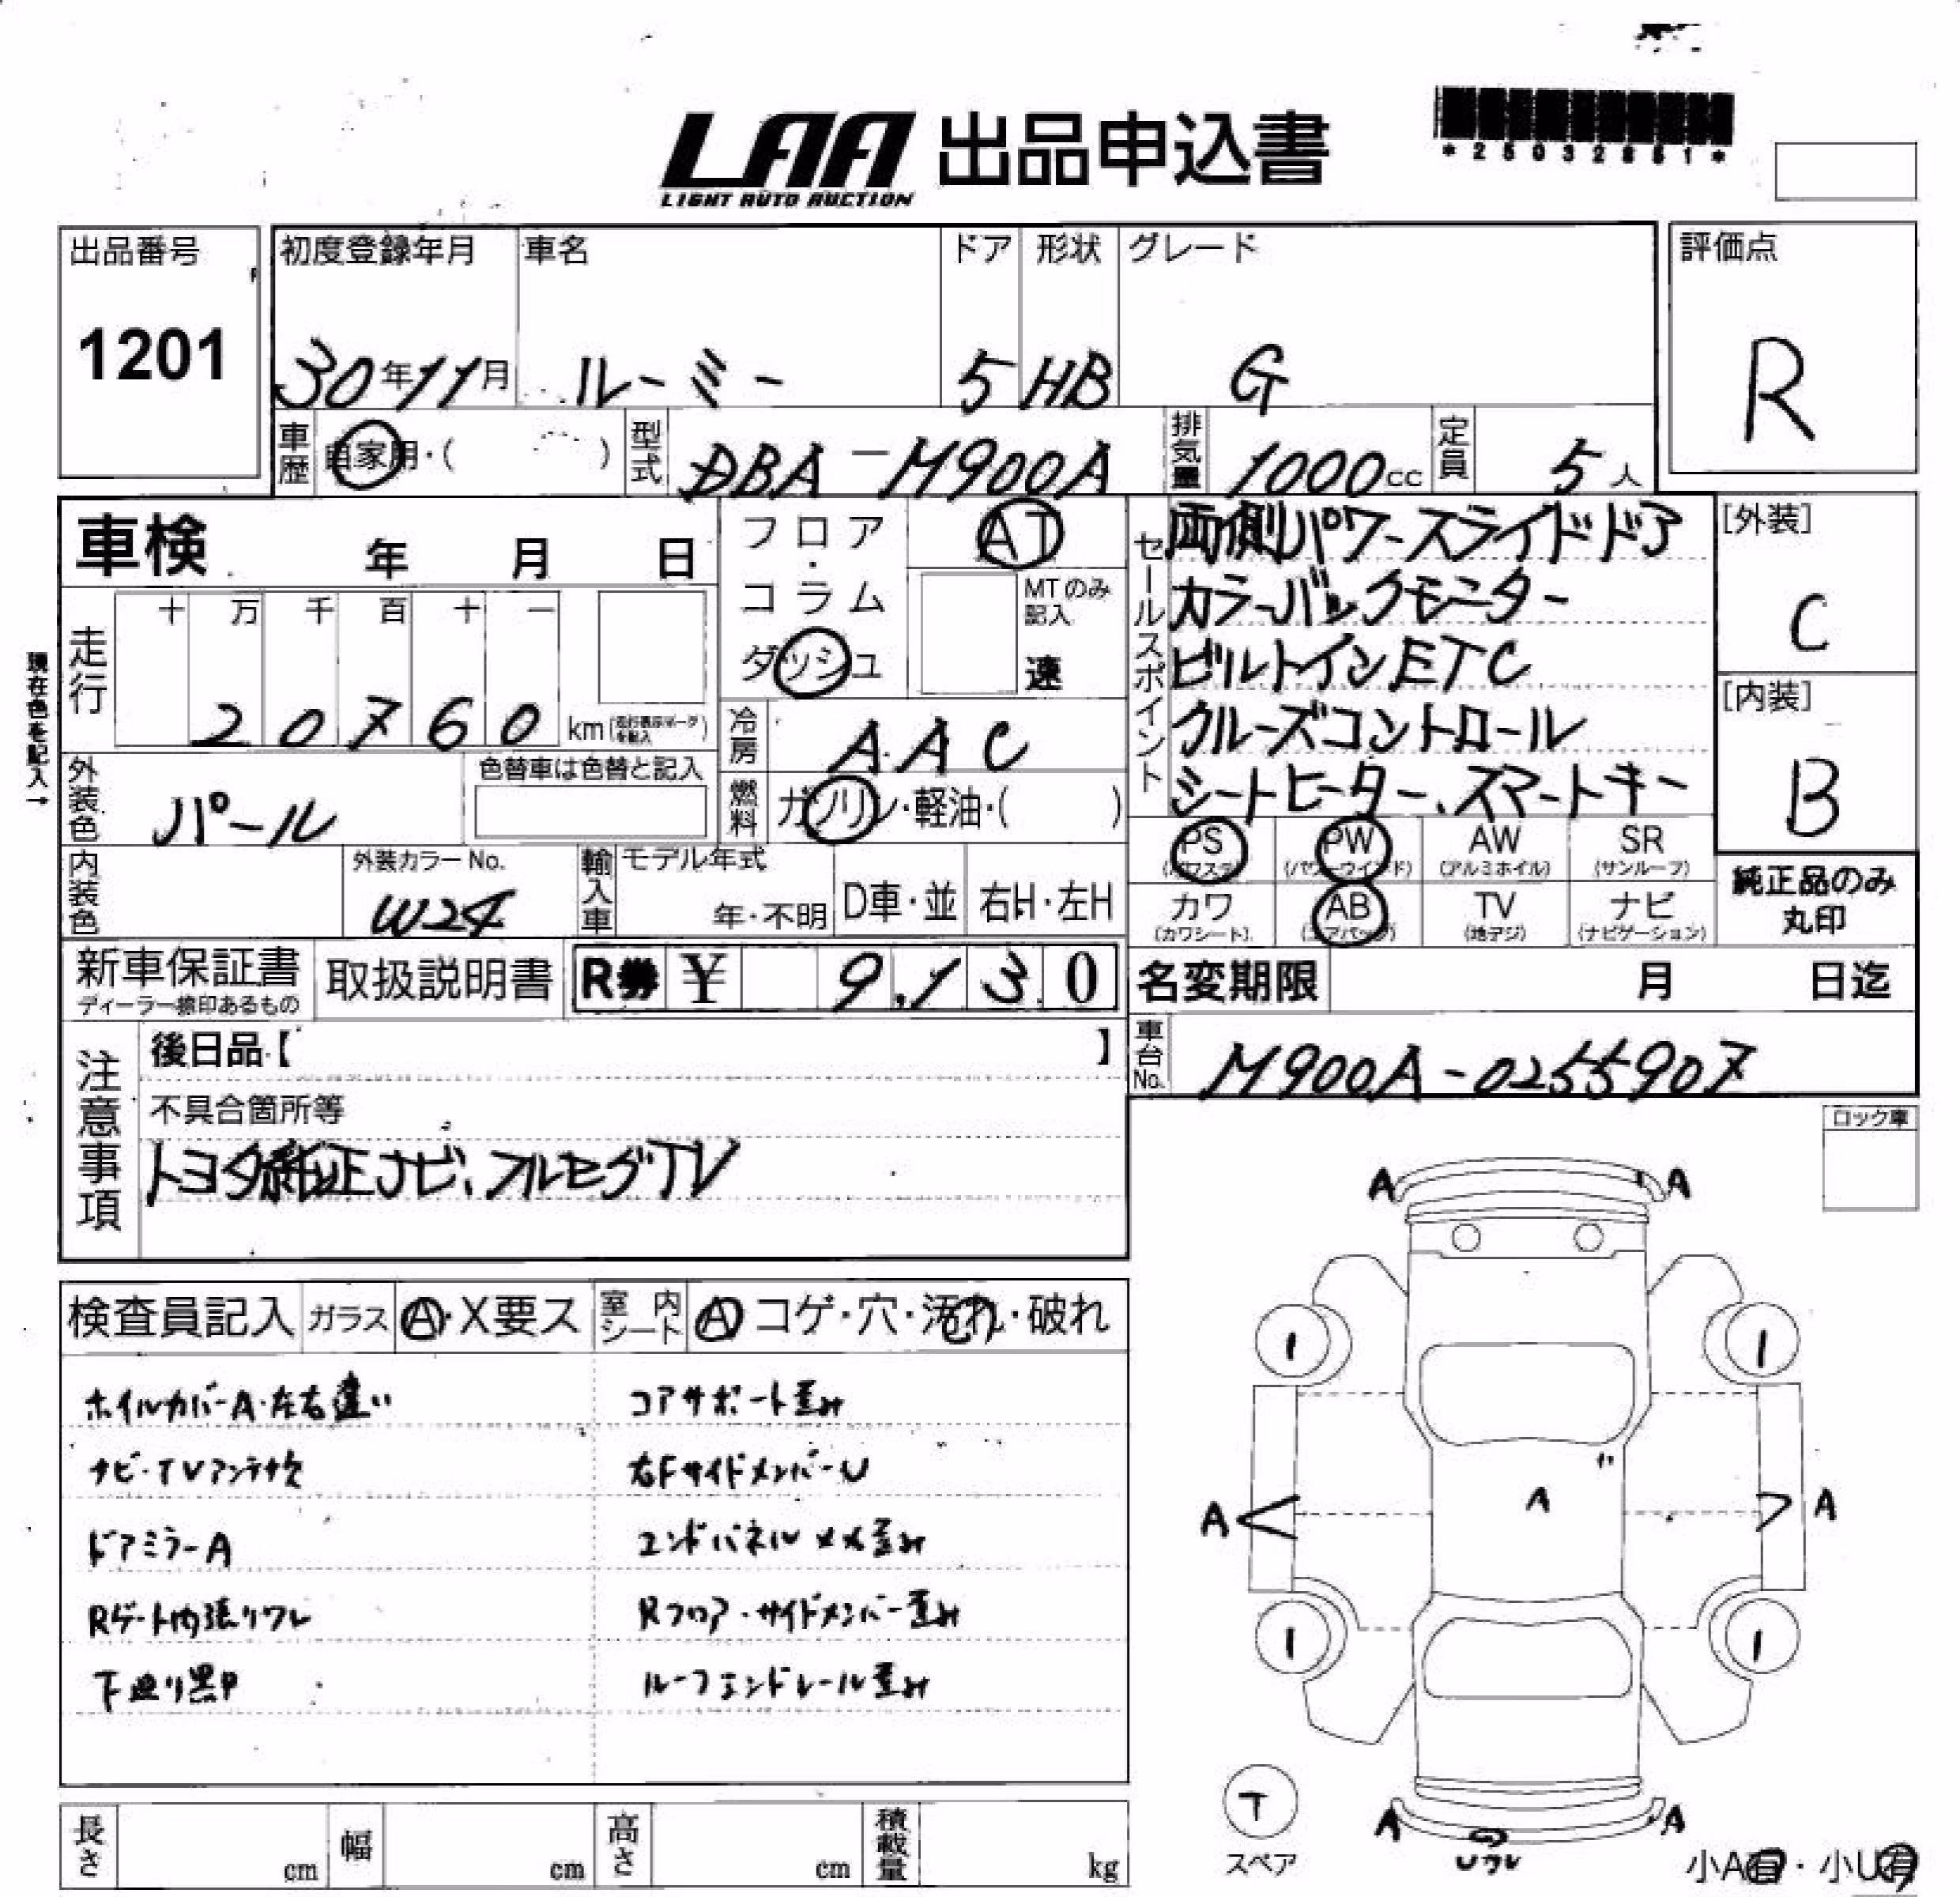 LAA 出品申込書
LIGHT AUTO AUCTION
*25032851*
出品番号
1201
初度登録年月
30年11月
車名
ルーミー
ドア
5
形状
HB
グレード
G
評価点
R
車歴
自家用・( )
型式
DBA-M900A
排気量
1000cc
定員
5人
車検 年 月 日
フロア・コラム
ダッシュ
AT
MTのみ記入
速
セールスポイント
両側パワースライドドア
カラーバックモニター
ビルトインETC
クルーズコントロール
シートヒーター、スマートキー
[外装]
C
[内装]
B
現在色を記入→
走行
十 万 千 百 十 一
20760 km
冷房
AAC
外装色
パール
色替車は色替と記入
燃料
ガソリン・軽油・( )
PS (パワステ)
PW (パワーウインド)
AW (アルミホイル)
SR (サンルーフ)
カワ (カワシート)
AB (エアバッグ)
TV (地デジ)
ナビ (ナビゲーション)
純正品のみ
丸印
内装色
外装カラーNo.
W24
輸入車
モデル年式
年・不明
D車・並
右H・左H
新車保証書
ディーラー捺印あるもの
取扱説明書
R券 ¥ 9,130
名変期限 月 日迄
車台No.
M900A-0255907
注意事項
後日品【 】
不具合箇所等
トヨタ純正ナビ、フルセグTV
ロック車
検査員記入
ガラス
A・X要ス
室内シート
A コゲ・穴・汚れ・破れ
ホイルカバーA・左右違い
ナビ・TVアンテナ欠
ドアミラーA
Rゲート内張りワレ
下廻り黒P
コアサポート歪み
右FサイドメンバーU
エンドパネルメメ歪み
Rフロア・サイドメンバー歪み
ルーフエンドレール歪み
A A
1 1
A A A
1 1
T
スペア
A A
Uワレ
小A有・小U有
長さ cm
幅 cm
高さ cm
積載量 kg